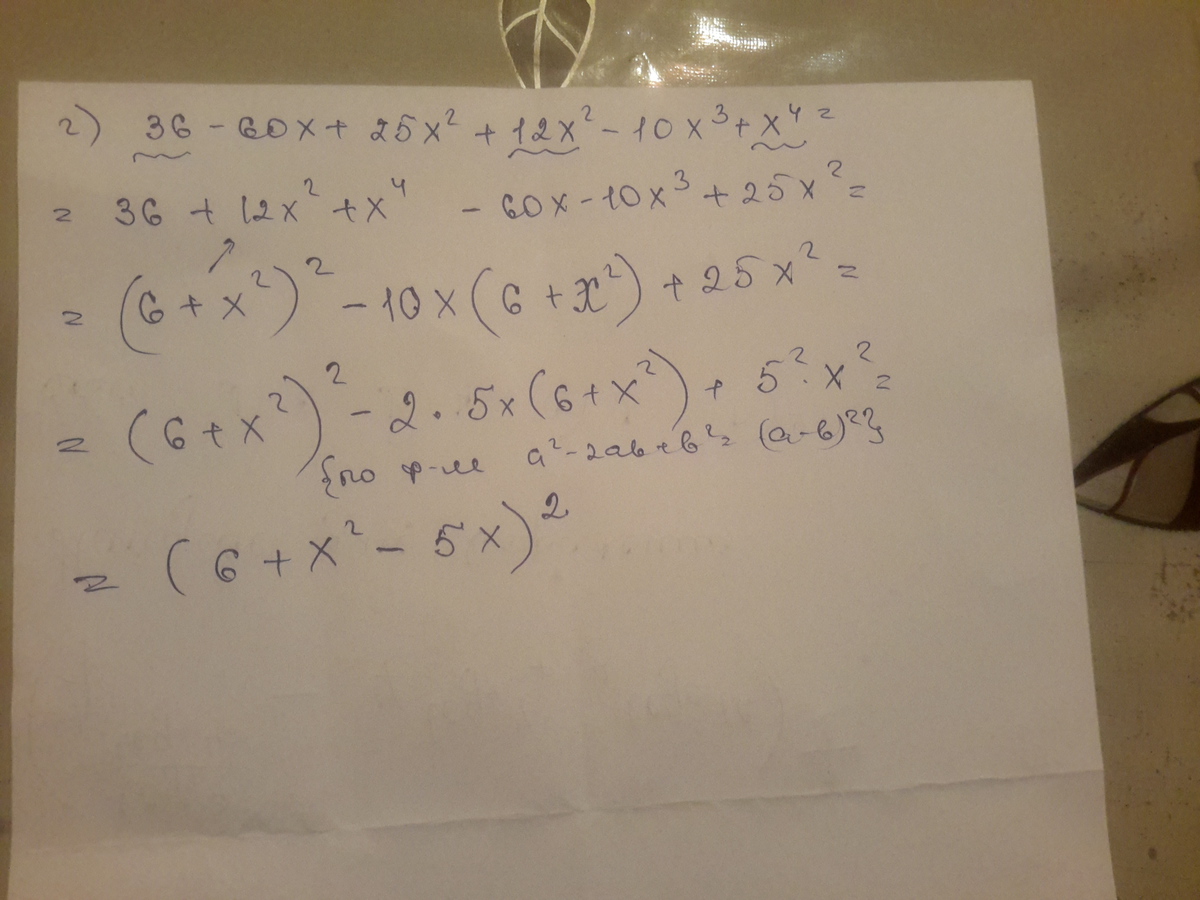 г) 36 - 60x + 25x² + 12x² - 10x³ + x⁴ =
= 36 + 12x² + x⁴ - 60x - 10x³ + 25x² =
= (6 + x²)² - 10x(6 + x²) + 25x² =
= (6 + x²)² - 2 · 5x(6 + x²) + 5² · x² =
{по ф-ле a² - 2ab + b² = (a - b)²}
= (6 + x² - 5x)²